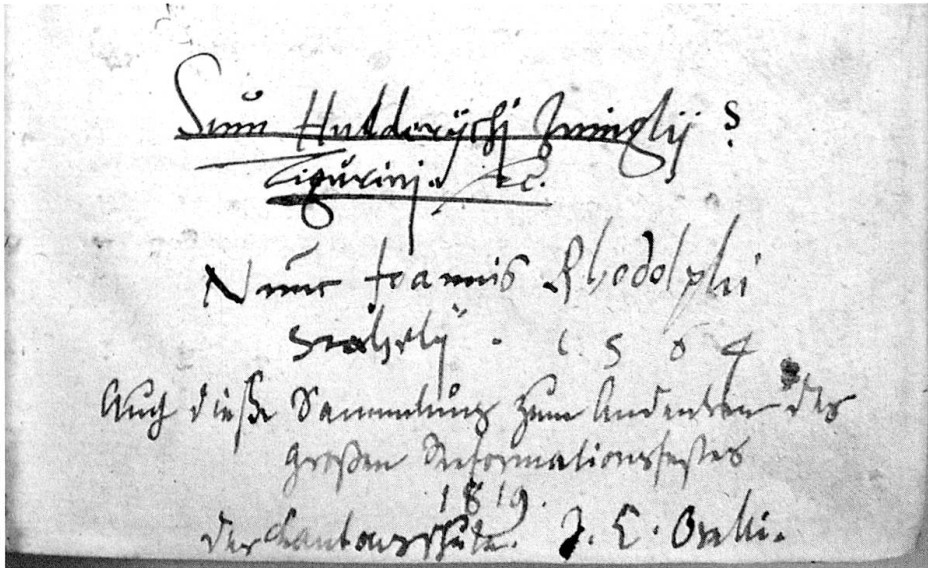 Sum Huldrychj Zwinglij
Tigurinj. &c.
Nunc Joannis Rhodolphi
1564
Auch diese Sammlung zum Andenken des
großen Reformationsfestes
1819.
der Cantonsschule. J. C. Orelli.